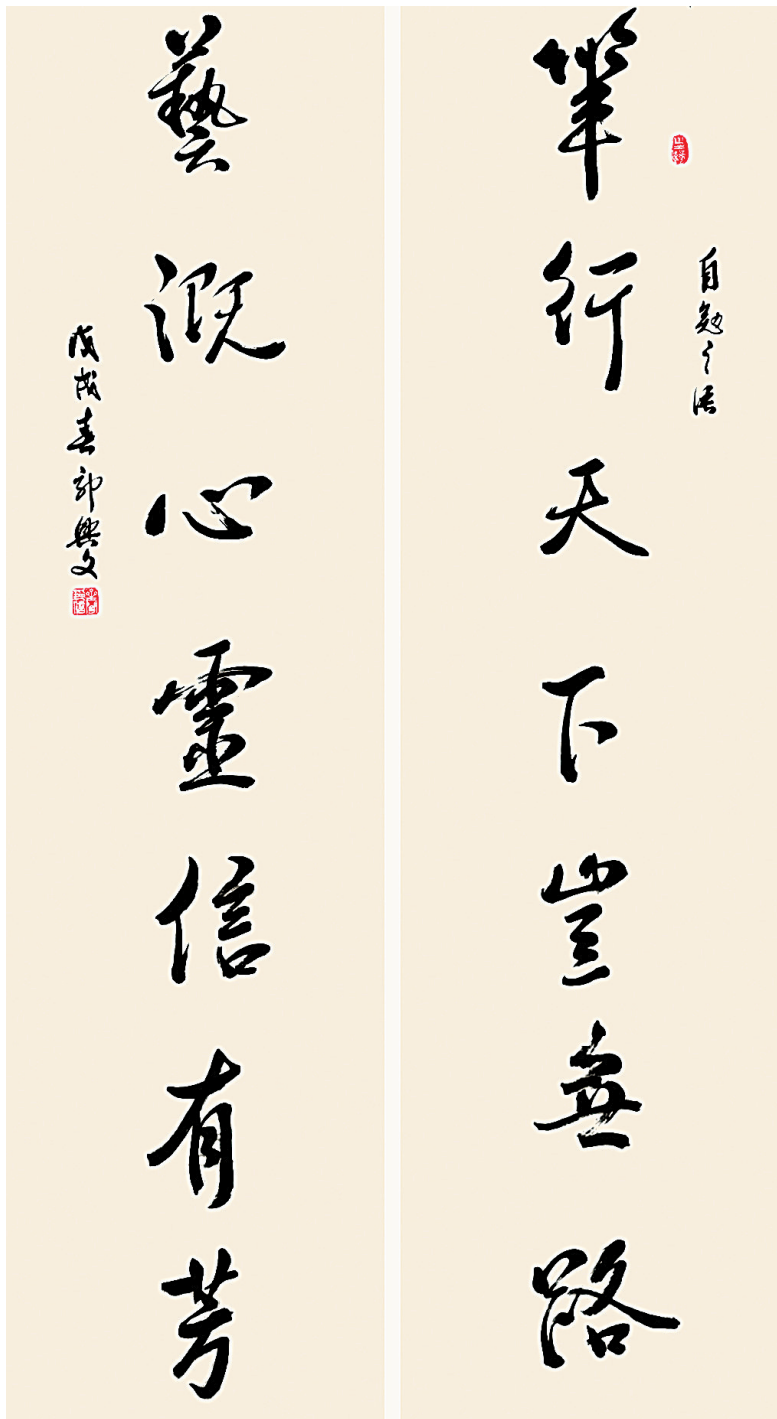 筆行天下豈無路
自勉之語
藝溉心靈信有芳
戊戌春郭興文